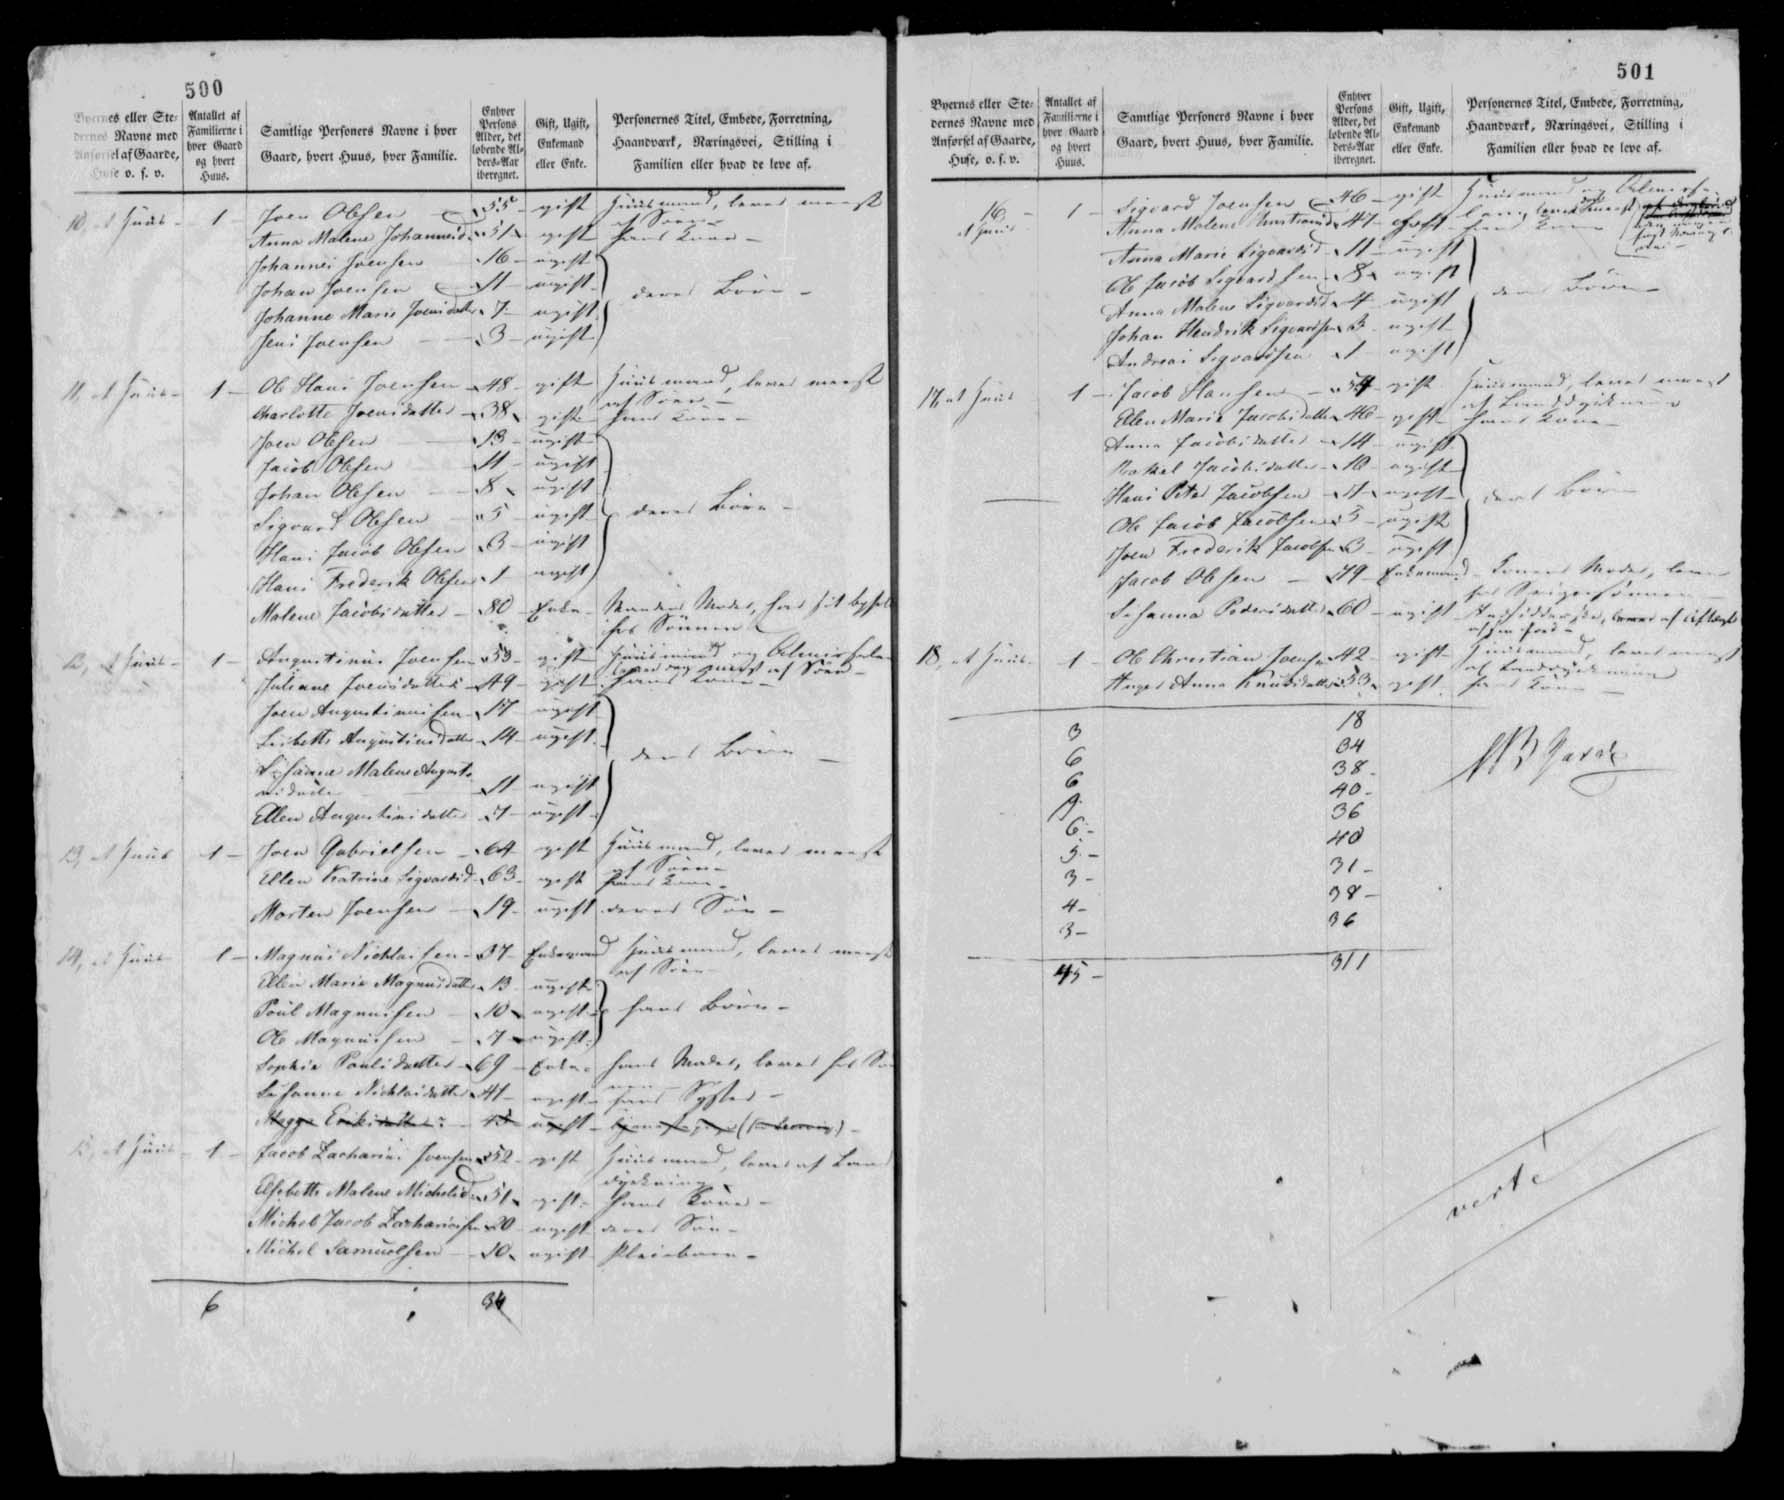 500
Byernes eller Ste-
dernes Navne med
Anførsel af Gaarde,
Huse o. s. v.
Antallet af
Familierne i
hver Gaard
og hvert
Huus.
Samtlige Personers Navne i hver
Gaard, hvert Huus, hver Familie.
Enhver
Persons
Alder, det
løbende Al-
ders-Aar
iberegnet.
Gift, Ugift,
Enkemand
eller Enke.
Personernes Titel, Embede, Forretning,
Haandværk, Næringsvei, Stilling i
Familien eller hvad de leve af.
10, et Huus - 1 - Joen Olesen - 55 - gift Huusmand, lever meest
af Søen -
Anna Malene Johannisd. 51 - gift hans Kone -
Johannes Joensen - 16 - ugift
Johan Joensen - 11 - ugift
deres Børn -
Johanne Marie Joensdatter 7 - ugift
Jens Joensen - 3 - ugift
11, et Huus - 1 - Ole Hans Joensen - 48 - gift Huusmand, lever meest
af Søen -
Charlotte Joensdatter - 38 - gift - hans Kone -
Joen Olesen - 13 - ugift
Jacob Olesen - 11 - ugift
Johan Olesen - 8 - ugift
Sigvard Olesen - 5 - ugift deres Børn -
Hans Jacob Olesen - 3 - ugift
Hans Frederik Olesen - 1 - ugift
Malene Jacobsdatter - 80 - Enke - Mandens Moder, har sit Ophold
hos Sønnen
12, et Huus - 1 - Augustinus Joensen - 53 - gift - Huusmand og
meest af Søen -
Juliane Joensdatter - 49 - gift - hans Kone -
Joen Augustinussen - 17 - ugift
Lisbeth Augustinusdatter - 14 - ugift
deres Børn -
Susanne Malene Augusti-
nusdatter 11 ugift
Ellen Augustinusdatter - 7 - ugift
13, et Huus 1 - Joen Gabrielsen - 64 - gift Huusmand, lever meest
af Søen -
Ellen Katrine Sigvardsd. 63 - gift hans Kone -
Morten Joensen - 19 - ugift deres Søn -
14, et Huus 1 - Magnus Nicklaisen - 37 - Enkemand Huusmand, lever meest
af Søen -
Ellen Marie Magnusdatter 13 - ugift
Poul Magnussen - 10 - ugift - hans Børn -
Ole Magnussen - 7 - ugift
Sophie Poulsdatter - 69 - Enke - hans Moder, lever hos Søn-
nen -
Susanne Nicklaisdatter - 41 - ugift - hans Syster -
15, et Huus - 1 - Jacob Zacharias Joensen 52 - gift Huusmand, lever af Land-
dyrkning -
Elsebeth Malene Michelsd. 51 - gift - hans Kone -
Michel Jacob Zachariasen 20 - ugift deres Søn -
Michel Samuelsen - 10 - ugift Pleiebarn -
6 34
501
Byernes eller Ste-
dernes Navne med
Anførsel af Gaarde,
Huse, o. s. v.
Antallet af
Familierne i
hver Gaard
og hvert
Huus.
Samtlige Personers Navne i hver
Gaard, hvert Huus, hver Familie.
Enhver
Persons
Alder, det
løbende Al-
ders-Aar
iberegnet.
Gift, Ugift,
Enkemand
eller Enke.
Personernes Titel, Embede, Forretning,
Haandværk, Næringsvei, Stilling i
Familien eller hvad de leve af.
16, et Huus 1 - Sigvard Joensen - 46 - gift Huusmand og
Anna Malene 47 - gift - hans Kone
Anna Marie Sigvardsd. 11 - ugift
Ole Jacob Sigvardsen 8 ugift
deres Børn -
Anna Malene Sigvardsd. 4 - ugift
Johan Hendrik Sigvardsen 3 - ugift
Andreas Sigvardsen 1 - ugift
17, et Huus 1 - Jacob Hansen - 54 - gift Huusmand, lever meest
af Landdyrkning
Ellen Marie Jacobsdatter 46 - gift - hans Kone -
Anna Jacobsdatter - 14 - ugift
Rakel Jacobsdatter - 10 - ugift
Hans Peter Jacobsen - ugift deres Børn
Ole Jacob Jacobsen 5 - ugift
Joen Frederik Jacobsen 3 - ugift
Jacob Olesen - 79 - Enkemand - Konens lever
hos Svigersønnen
Susanna Pedersdatter 60 - ugift -
18, et Huus 1 - Ole Christian Joensen 42 - gift - Huusmand, lever meest
af Landdyrkning
Anna Knudsdatter 53 - gift hans Kone -
3 18
6 34
6 38 -
9 - 40 -
6 - 36
5 - 40
3 - 31 -
4 - 38 -
3 - 36
45 - 311
verte